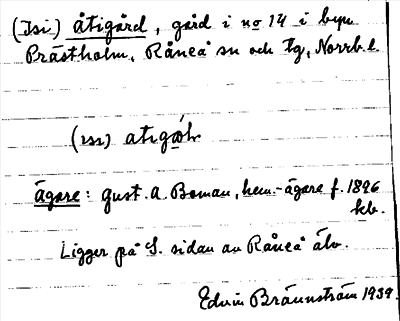 (Isi) Åtigård, gård i no 14 i byn
Prästholm, Råneå sn och tg, Norrb. l.
(isi) atigo̱h
Ägare: Gust. A. Boman, hem.-ägare f. 1896
kb.
Ligger på S. sidan av Råneå älv.
Edvin Brännström 1939.